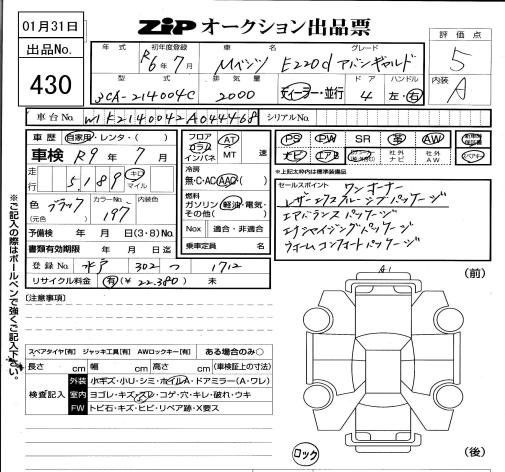 01月31日
出品No.
430
ZIP オークション出品票
評価点
5
内装
A
年式 初年度登録 車名 グレード
R6年7月 Mベンツ E220d アバンギャルド
型式 排気量 ドア ハンドル
3CA-214004C 2000 ディーラー・並行 4 左・右
車台No. W1K2140042A044468 シリアルNo.
車歴 自家用・レンタ・( )
車検 R9年7月
走行 5,189 キロ マイル
色 ブラック (元色) カラーNo. 197 内装色
予備検 年 月 日(3・8)No.
書類有効期限 年 月 日迄
登録No. 水戸 302 つ 1712
リサイクル料金 有(¥ 22,380) 未
フロア コラム インパネ AT MT 速
冷房 無・C・AC・AAC
燃料 ガソリン・軽油・電気・その他( )
Nox 適合・非適合
乗車定員 名
PS PW SR 革 AW
ナビ エアB 社外ナビ 社外AW
※上記太枠内は標準装備品
セールスポイント ワンオーナー
レザーエクスクルーシブパッケージ
エアバランスパッケージ
エナジャイジングパッケージ
ウォームコンフォートパッケージ
(注意事項)
A1
(前)
スペアタイヤ[有] ジャッキ工具[有] AWロックキー[有] ある場合のみ○
長さ cm 幅 cm 高さ cm (車検証上の寸法)
検査記入
外装 小キズ・小U・シミ・ホイルA・ドアミラー(A・ワレ)
室内 ヨゴレ・キズ・スレ・コゲ・穴・キレ・破れ・ウキ
FW トビ石・キズ・ヒビ・リペア跡・X要ス
ロック
(後)
※ご記入の際はボールペンで強くご記入下さい。